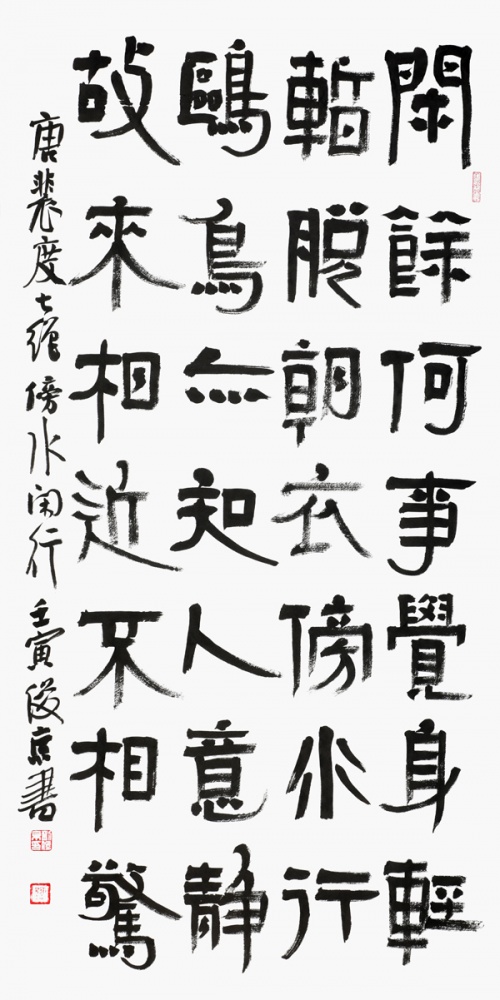 閑餘何事覺身輕
暫脫朝衣傍水行
鷗鳥亦知人意靜
故來相近不相驚
唐裴度七絕傍水閑行 壬寅俊京書